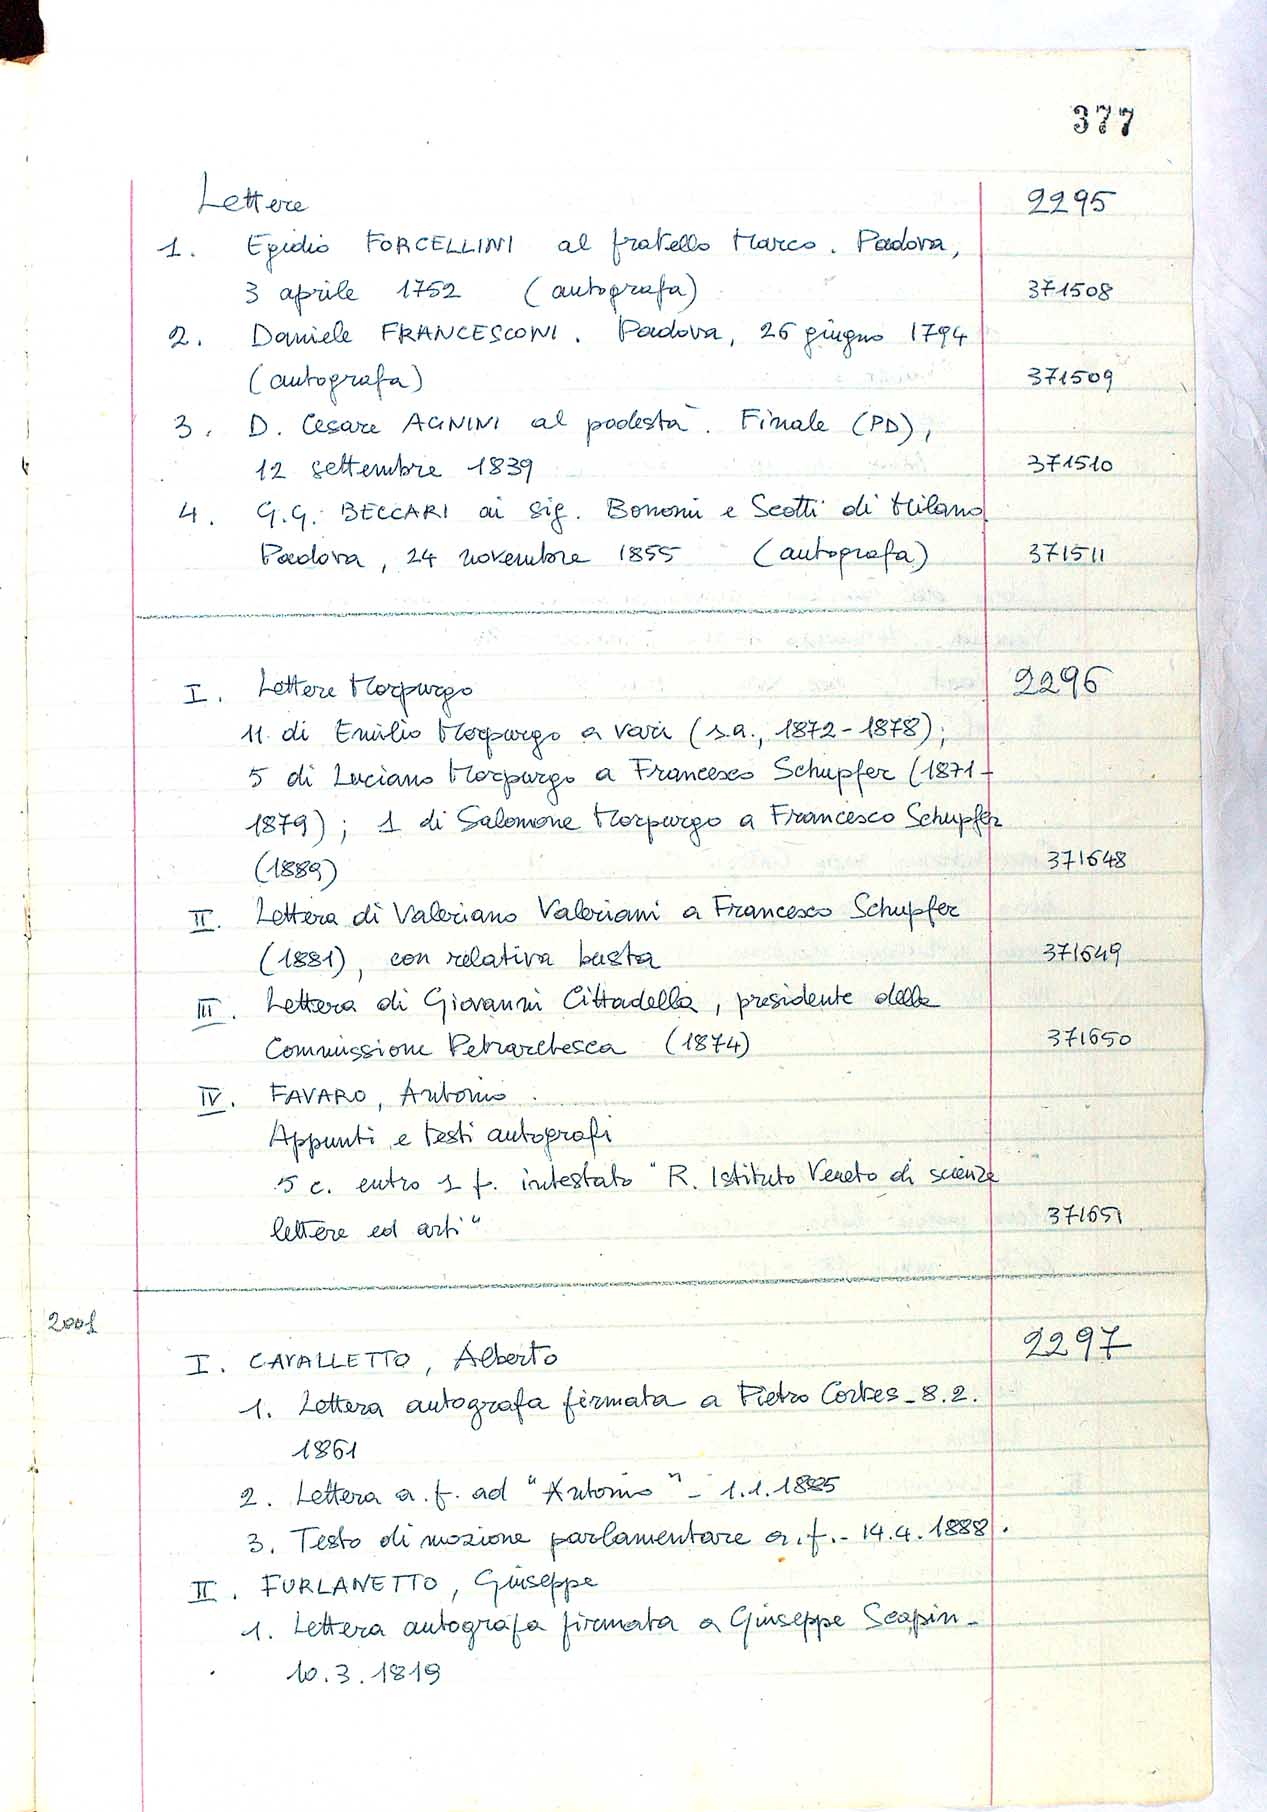 377
Lettere 2295
1. Egidio FORCELLINI al fratello Marco. Padova,
3 aprile 1752 (autografa) 371508
2. Daniele FRANCESCONI. Padova, 26 giugno 1794
(autografa) 371509
3. D. Cesare AGNINI al podestà. Finale (PD),
12 settembre 1839 371510
4. G.G. BECCARI ai sig. Bonomi e Scotti di Milano
Padova, 24 novembre 1855 (autografa) 371511
I. Lettere Morpurgo 2296
11 di Emilio Morpurgo a vari (s.a., 1872-1878);
5 di Luciano Morpurgo a Francesco Schupfer (1871-
1879); 1 di Salomone Morpurgo a Francesco Schupfer
(1889) 371648
II. Lettera di Valeriano Valeriani a Francesco Schupfer
(1881), con relativa busta 371649
III. Lettera di Giovanni Cittadella, presidente della
Commissione Petrarchesca (1874) 371650
IV. FAVARO, Antonio.
Appunti e testi autografi
5 c. entro 1 f. intestato "R. Istituto Veneto di scienze
lettere ed arti" 371651
2001
I. CAVALLETTO, Alberto 2297
1. Lettera autografa firmata a Pietro Cortes - 8.2.
1861
2. Lettera a.f. ad "Antonio" - 1.1.1885
3. Testo di mozione parlamentare a.f. - 14.4.1888.
II. FURLANETTO, Giuseppe
1. Lettera autografa firmata a Giuseppe Scapin -
10.3.1819